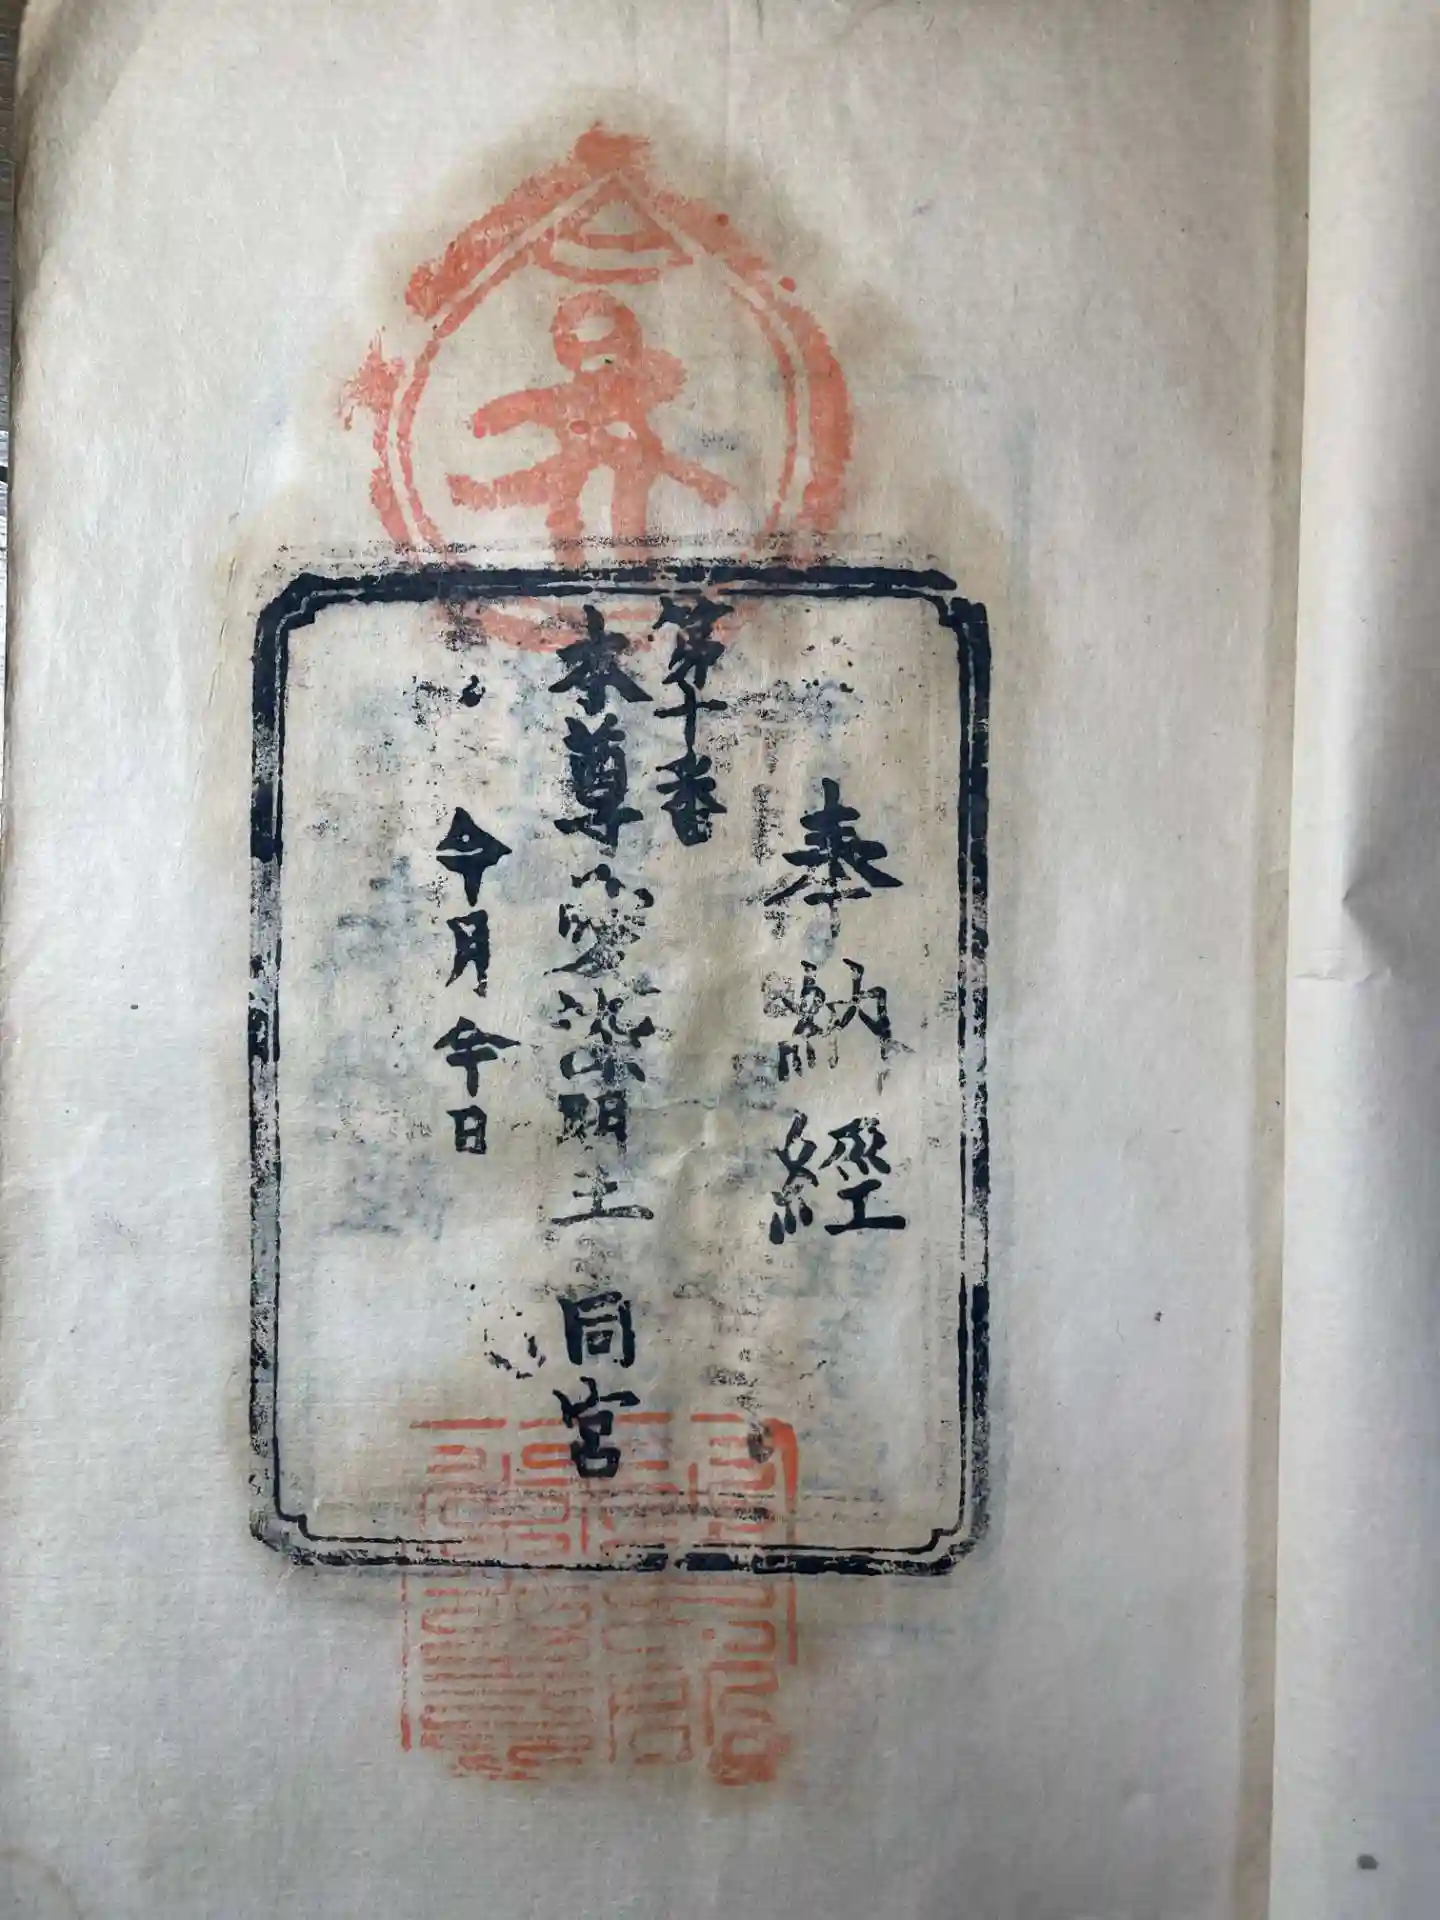 奉納經
第十番
本尊愛染明王 同宮
今月今日